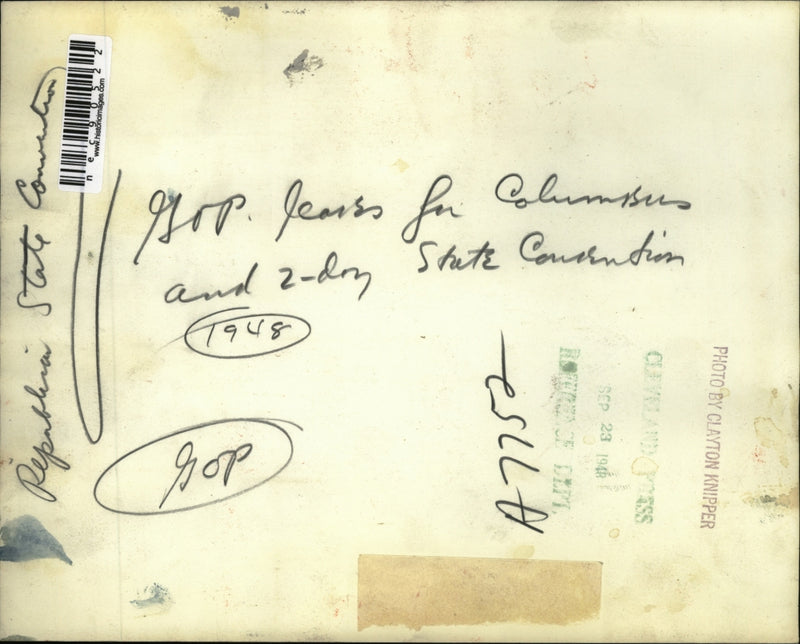 G.O.P. leaves for Columbus
and 2-day State Convention
1948
GOP
Republican State Convention
nec90522
www.historicimages.com
A-7152
REFERENCE DEPT
SEP 23 1948
CLEVELAND PRESS
PHOTO BY CLAYTON KNIPPER